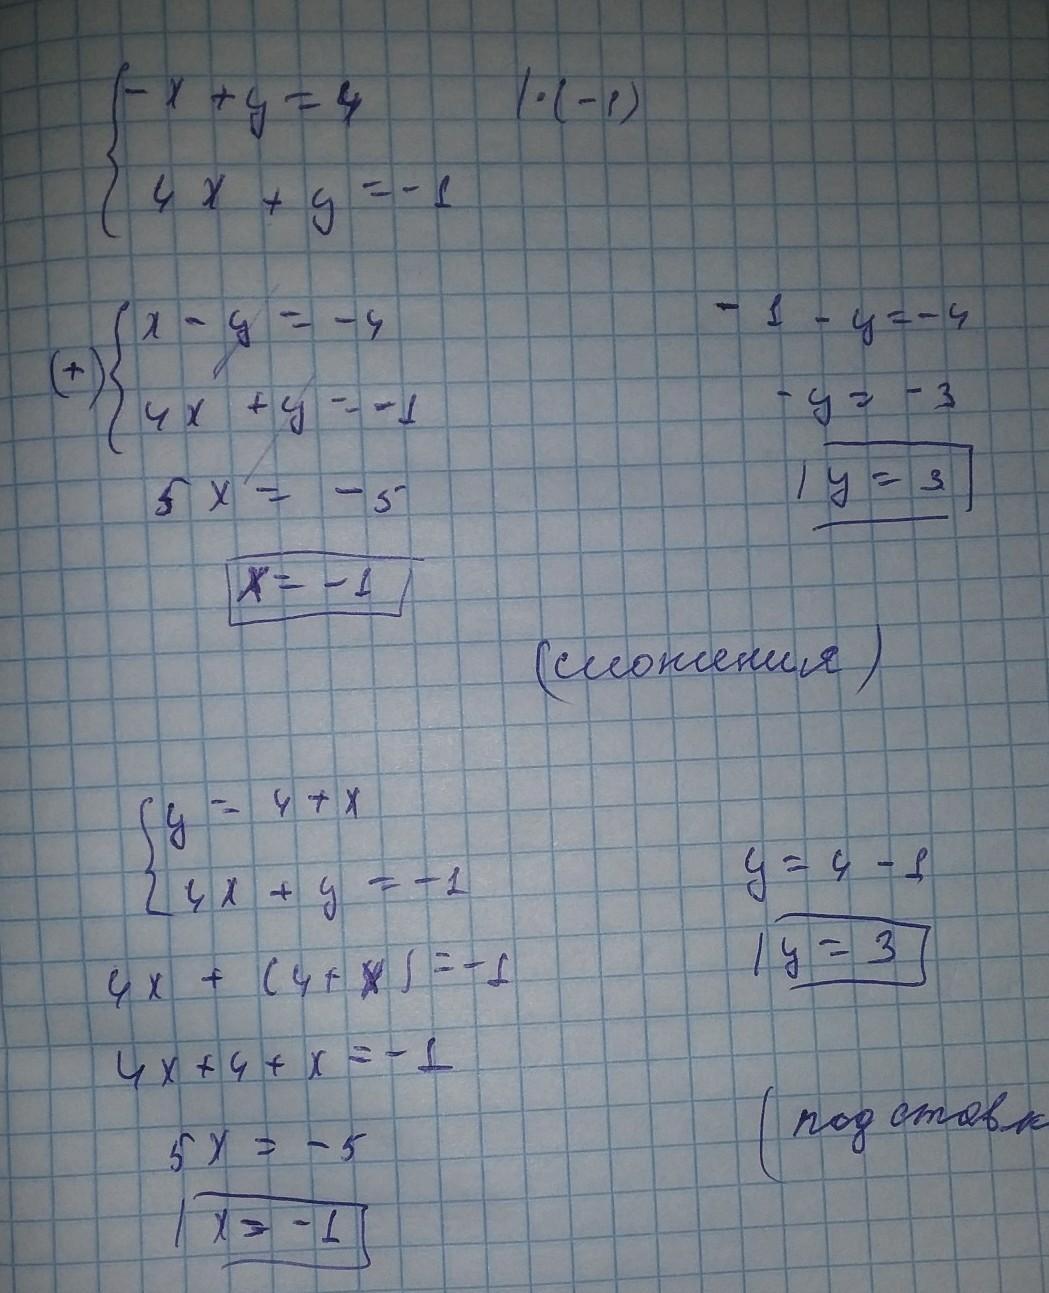 -x + y = 4 | · (-1)
4x + y = -1
x - y = -4
(+)
4x + y = -1
5x = -5
x = -1
-1 - y = -4
-y = -3
y = 3
(сложения)
y = 4 + x
4x + y = -1
4x + (4 + x) = -1
4x + 4 + x = -1
5x = -5
x = -1
y = 4 - 1
y = 3
(подставк